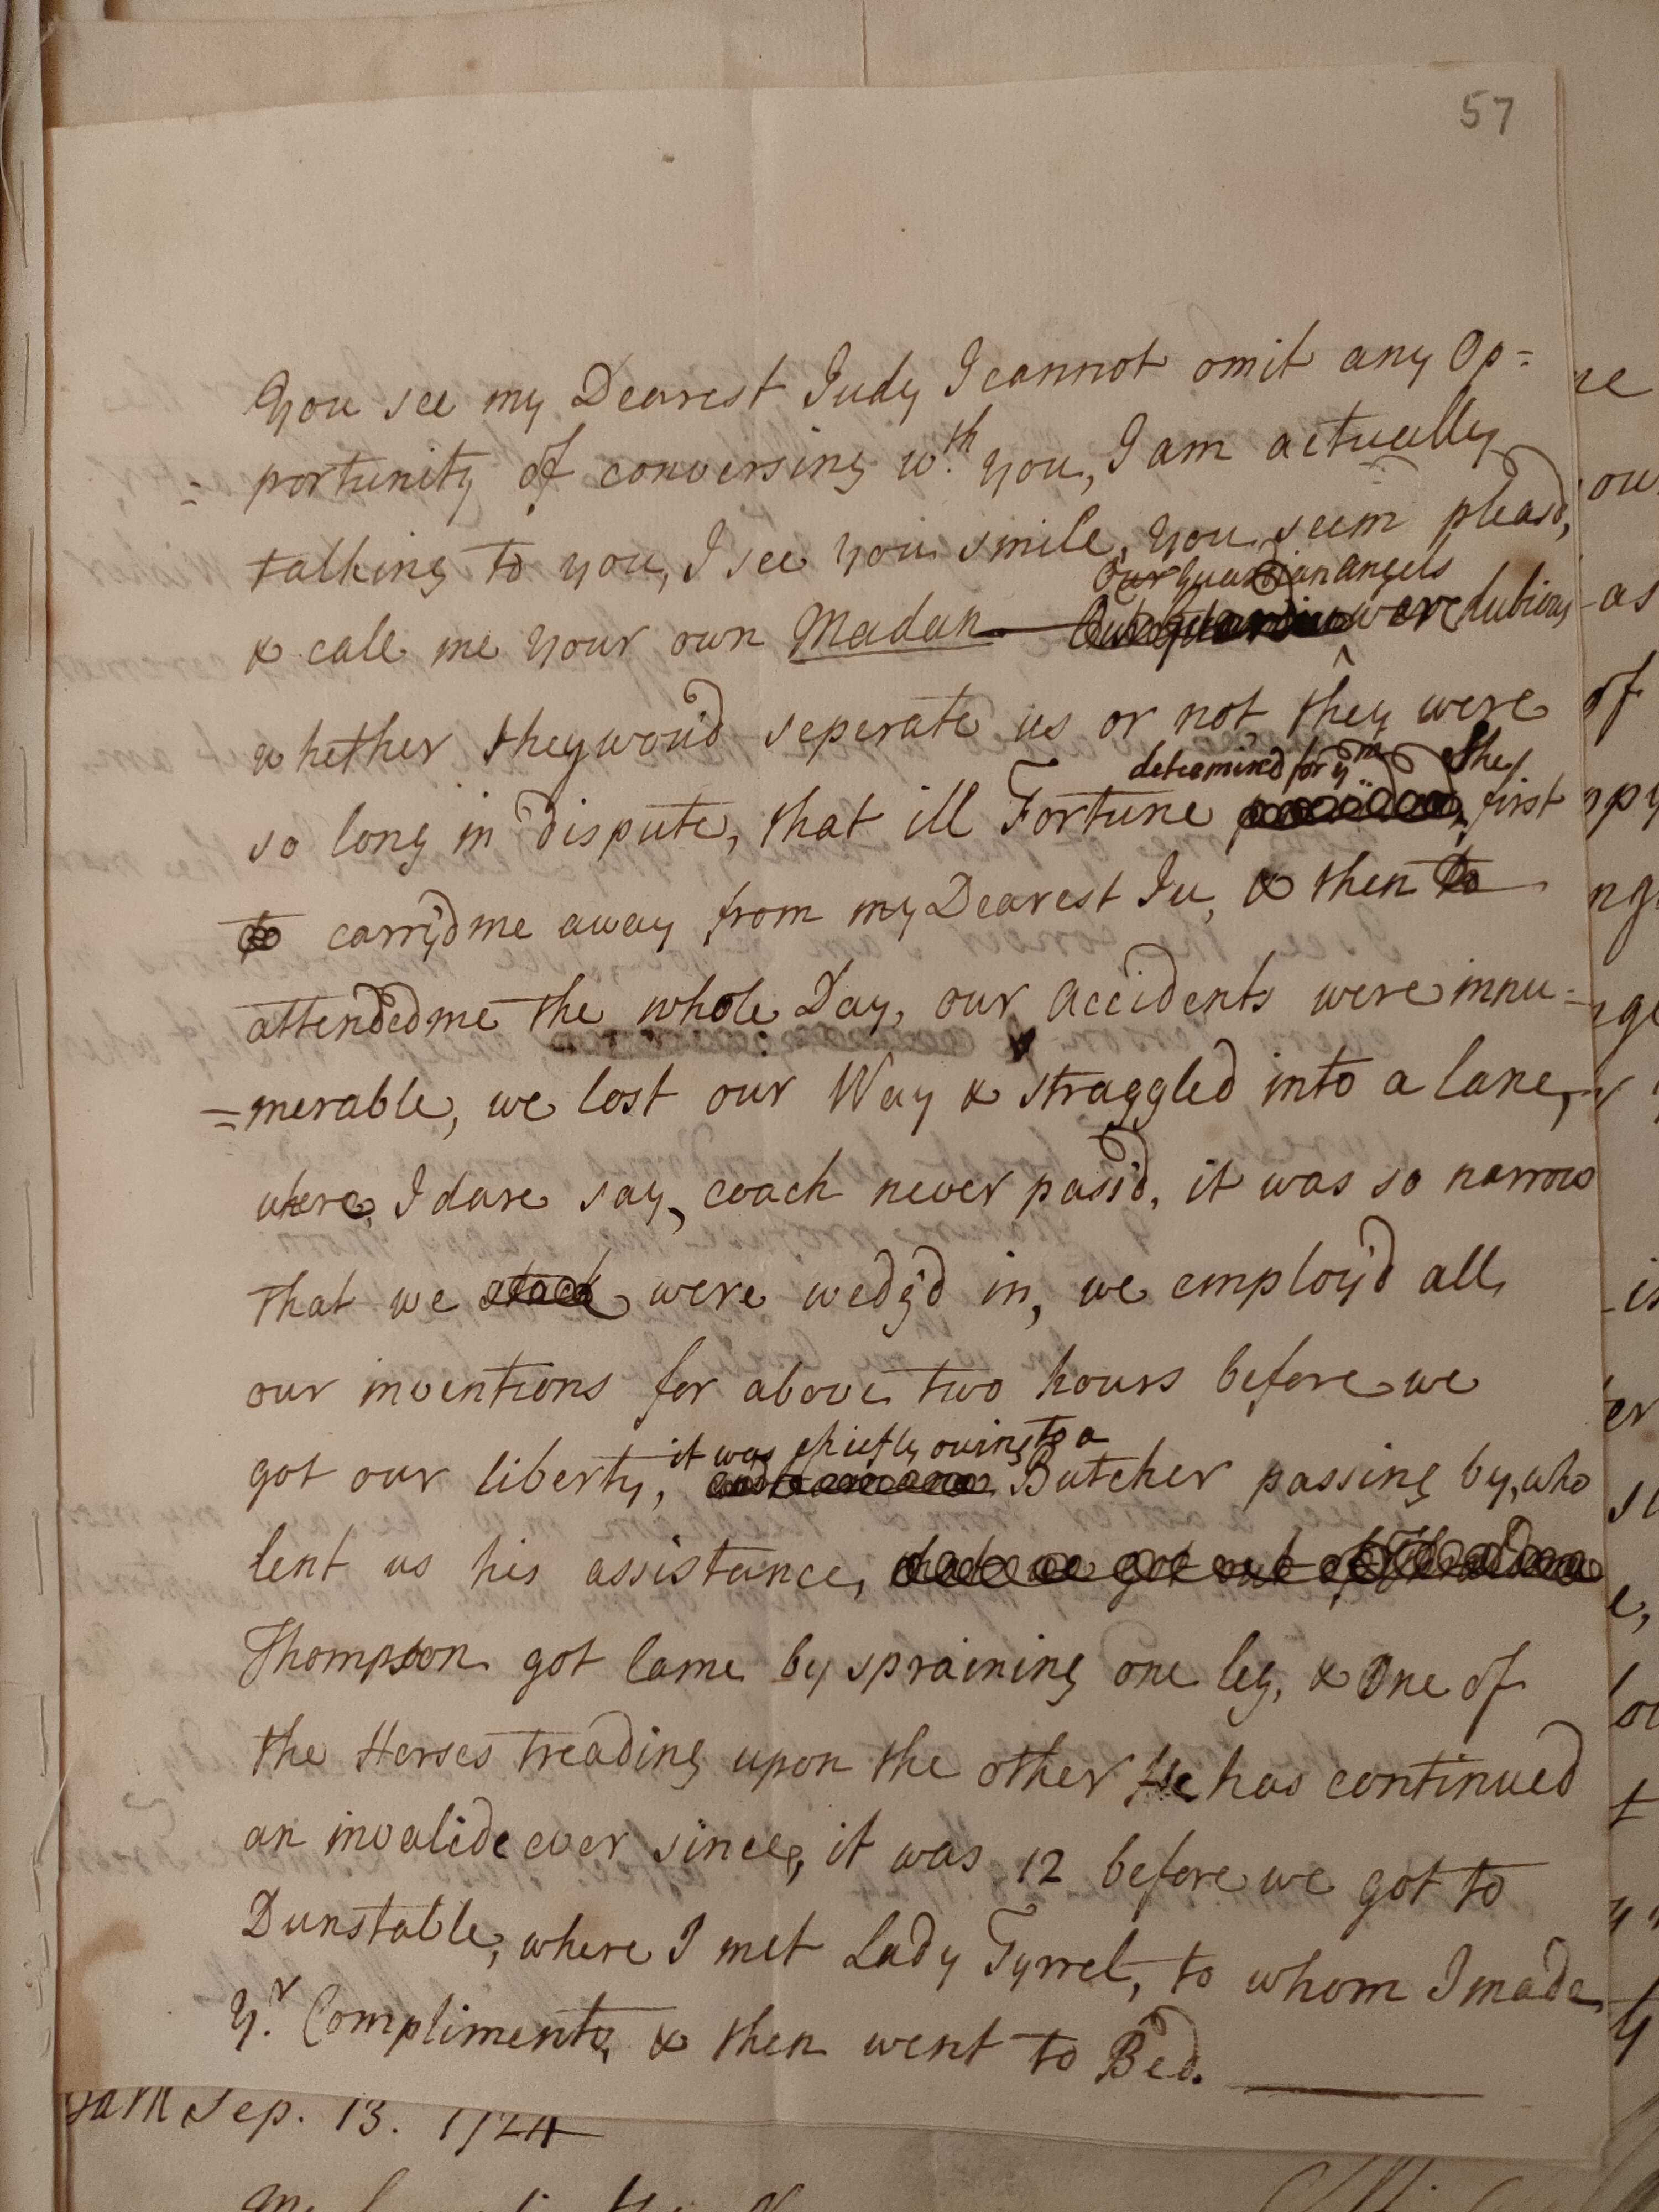 57
You see my Dearest Judy I cannot omit any Op=
=portunity of conversing wth. you, I am actually
talking to you, I see you smile, you seem pleas'd,
Our Guardian angels
& call me your own Madan— were dubious
whether they wou'd seperate us or not, they were
determin'd for ym. She
so long in dispute, that ill Fortune first
to carry'd me away from my Dearest Ju, & then to
attended me the whole Day, our accidents were innu=
=merable, we lost our Way & straggled into a lane,
where, I dare say, coach never pass'd, it was so narrow
that we stack were wedg'd in, we employ'd all
our inventions for above two hours before we
it was chiefly owing to a
got our liberty, Butcher passing by, who
lent us his assistance,
Thompson got lame by spraining one leg, & One of
the Horses treading upon the other He has continued
an invalide ever since, it was 12 before we got to
Dunstable, where I met Lady Tyrrel, to whom I made
Yr. Compliments, & then went to Bed.
Sep. 13. 1724